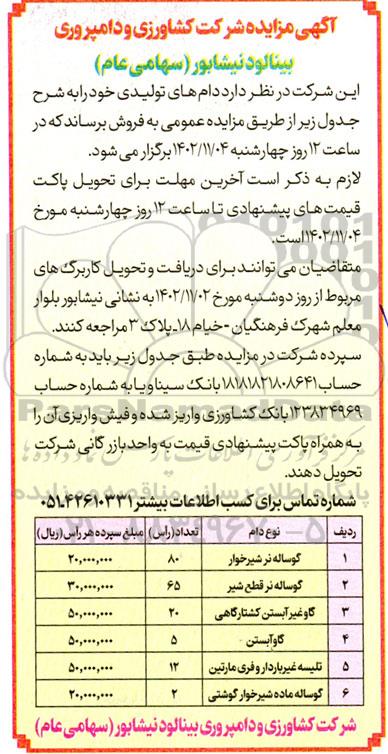 آگهی مزایده شرکت کشاورزی و دامپروری
بینالود نیشابور (سهامی عام)
این شرکت در نظر دارد دام های تولیدی خود را به شرح
جدول زیر از طریق مزایده عمومی به فروش برساند که در
ساعت ۱۲ روز چهارشنبه ۱۴۰۲/۱۱/۰۴ برگزار می شود.
لازم به ذکر است آخرین مهلت برای تحویل پاکت
قیمت های پیشنهادی تا ساعت ۱۲ روز چهارشنبه مورخ
۱۴۰۲/۱۱/۰۴ است.
متقاضیان می توانند برای دریافت و تحویل کاربرگ های
مربوط از روز دوشنبه مورخ ۱۴۰۲/۱۱/۰۲ به نشانی نیشابور بلوار
معلم شهرک فرهنگیان - خیام ۱۸ - پلاک ۳ مراجعه کنند.
سپرده شرکت در مزایده طبق جدول زیر باید به شماره
حساب ۱۸۱۸۱۸۲۱۸۰۸۶۴۱ بانک سینا و یا به شماره حساب
۱۲۳۸۲۴۹۶۹ بانک کشاورزی واریز شده و فیش واریزی آن را
به همراه پاکت پیشنهادی قیمت به واحد بازرگانی شرکت
تحویل دهند.
شماره تماس برای کسب اطلاعات بیشتر ۴۲۶۱۰۳۳۱-۰۵۱
ردیف نوع دام تعداد (راس) مبلغ سپرده هر راس (ریال)
۱ گوساله نر شیرخوار ۸۰ ۲۰,۰۰۰,۰۰۰
۲ گوساله نر قطع شیر ۶۵ ۳۰,۰۰۰,۰۰۰
۳ گاو غیر آبستن کشتارگاهی ۲۰ ۵۰,۰۰۰,۰۰۰
۴ گاو آبستن ۵ ۵۰,۰۰۰,۰۰۰
۵ تلیسه غیرباردار و فری مارتین ۱۲ ۵۰,۰۰۰,۰۰۰
۶ گوساله ماده شیرخوار گوشتی ۲ ۲۰,۰۰۰,۰۰۰
شرکت کشاورزی و دامپروری بینالود نیشابور (سهامی عام)